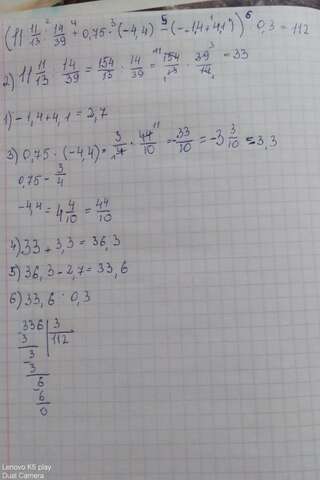 (11 11/13 : 14/39 + 0,75 · (-4,4) - (-1,4+4,1)) : 0,3 = 112
2) 11 11/13 : 14/39 = 154/13 : 14/39 = 154/13 · 39/14 = 33
1) -1,4+4,1 = 2,7
3) 0,75 · (-4,4) = 3/4 · 44/10 = 33/10 = -3 3/10 = 3,3
0,75 - 3/4
-4,4 = 4 4/10 = 44/10
4) 33 + 3,3 = 36,3
5) 36,3 - 2,7 = 33,6
6) 33,6 : 0,3
336 | 3
3 | 112
3
3
6
6
0
Lenovo K5 play
Dual Camera